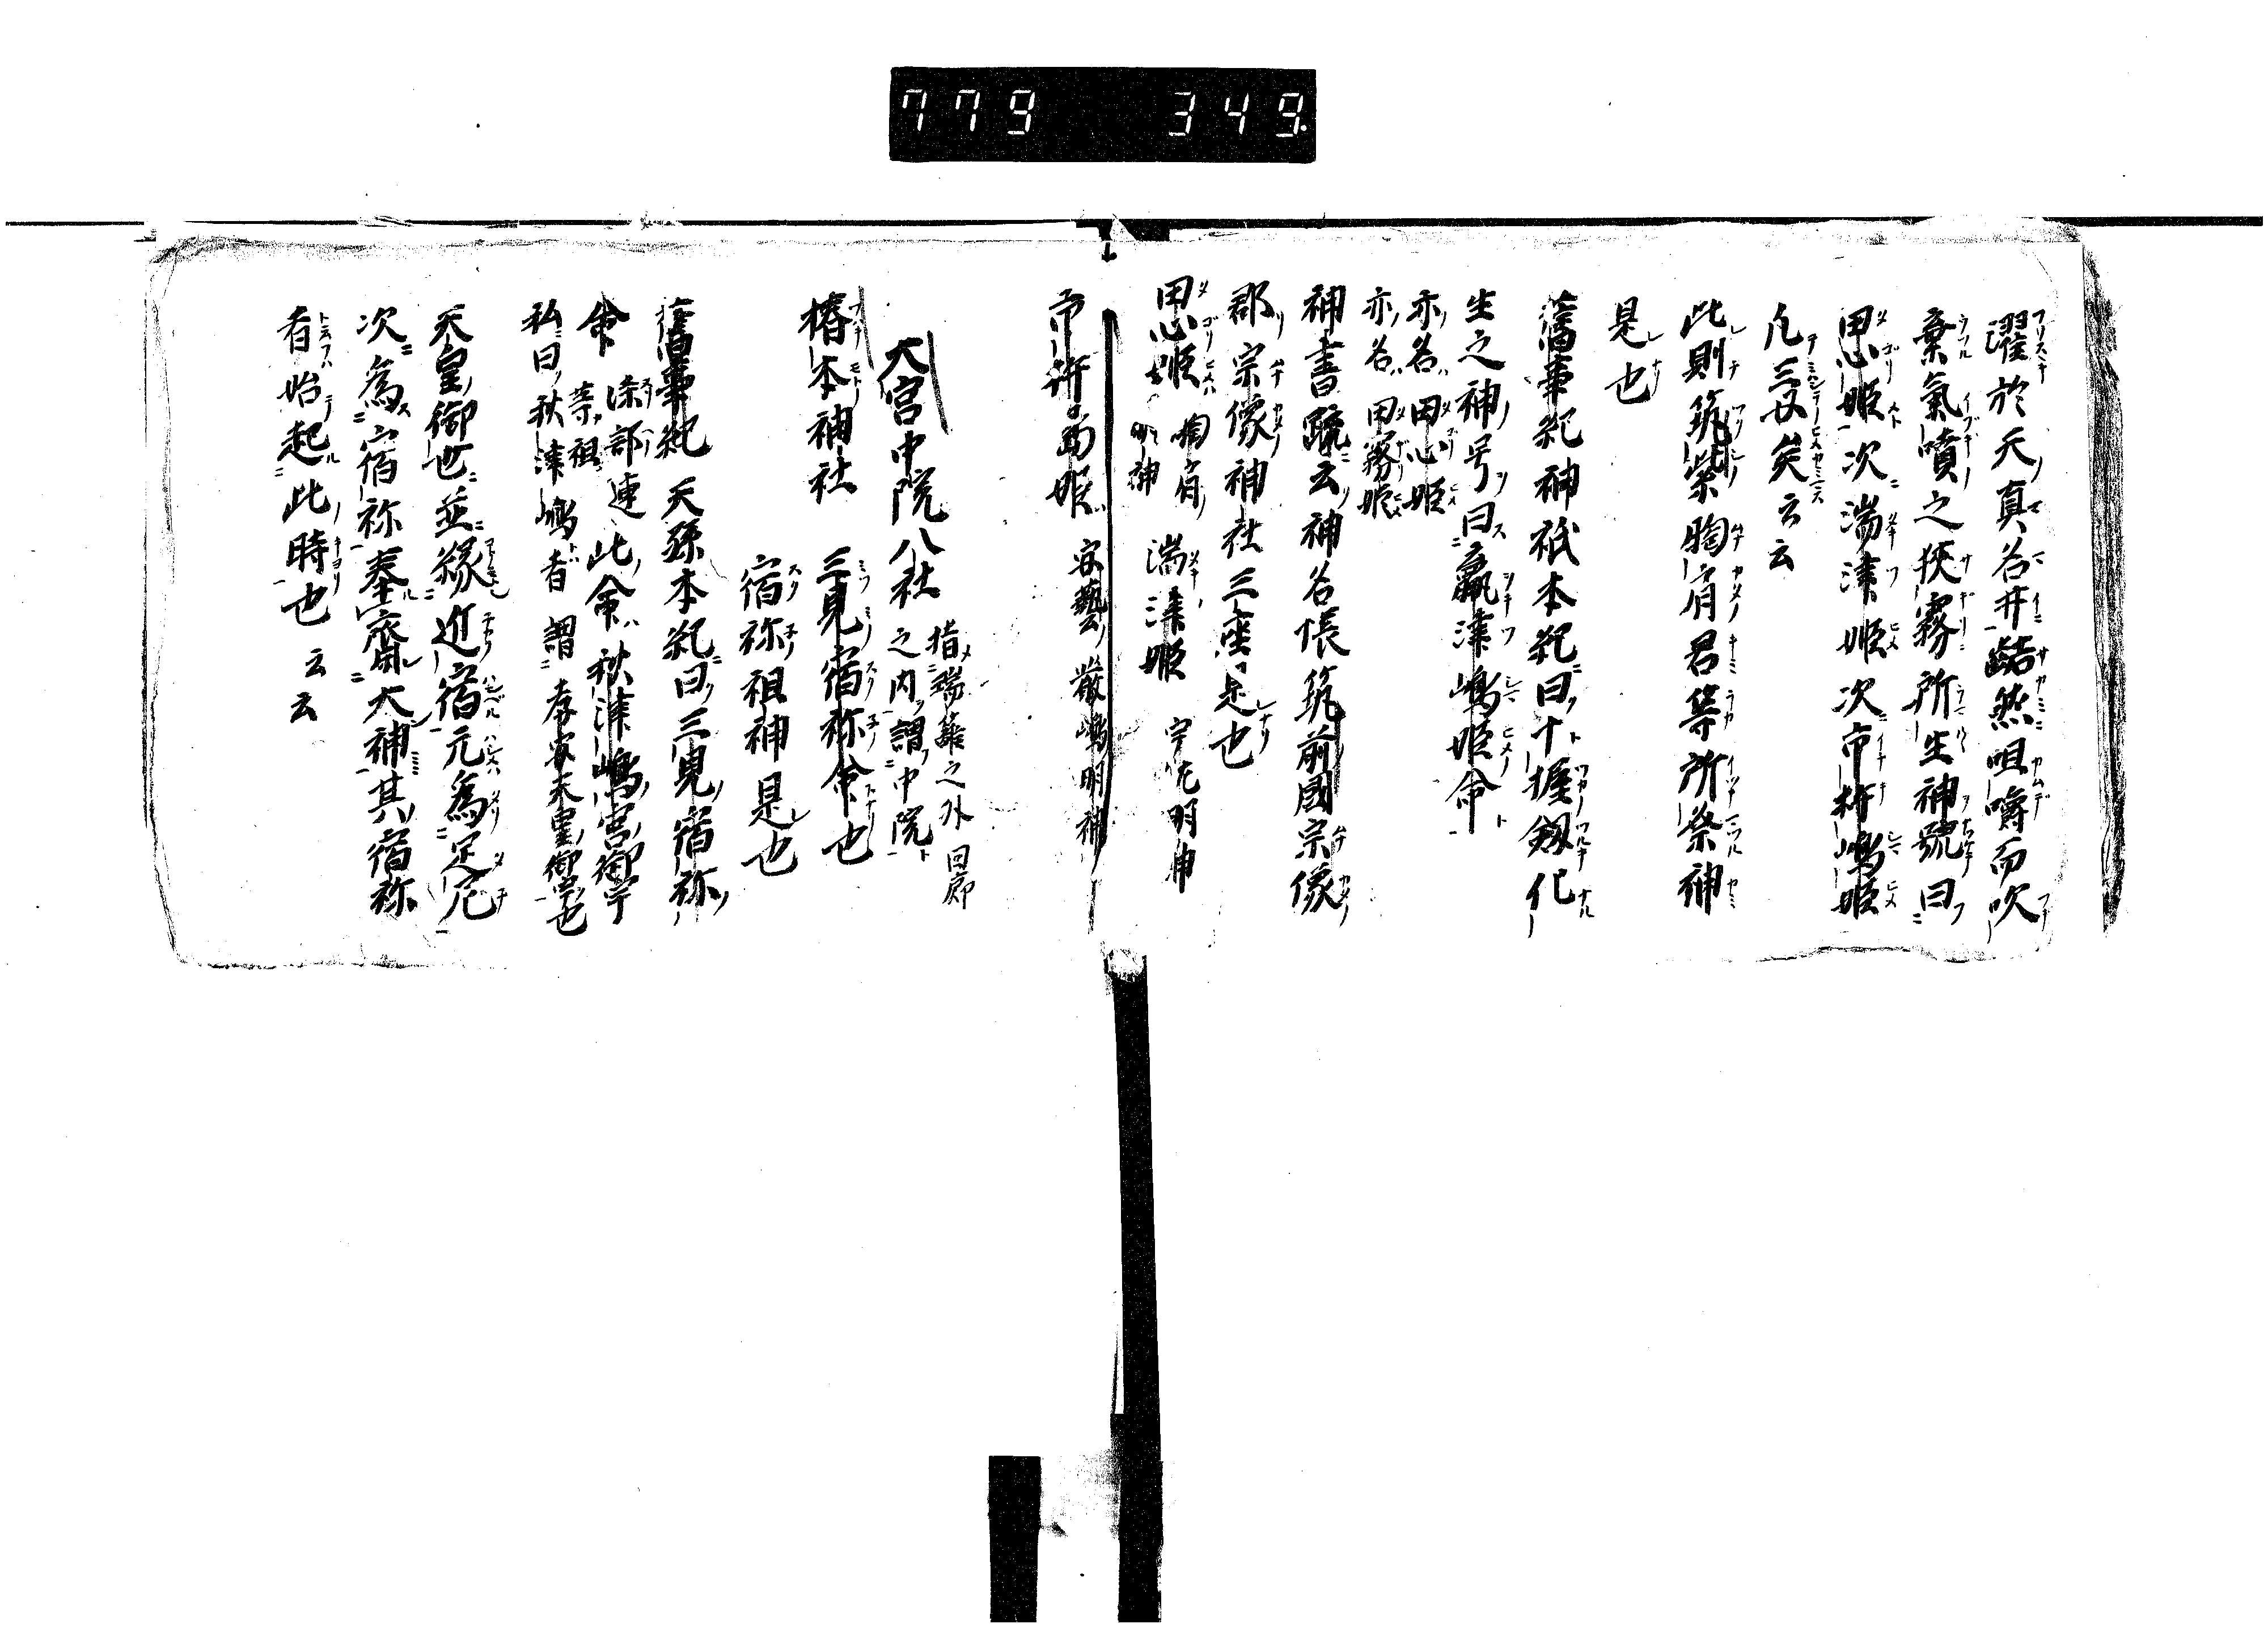 779 349.
濯於天真名井齧然咀嚼而吹
棄氣噴之狹霧所生神號曰
思姫次湍津姫次市杵嶋姫
凡三女矣云云
此則筑紫胸肩君等所祭神
是也
舊事紀神祇本紀曰十握劔化
生之神号曰瀛津嶋姫命
亦名田心姫
亦名田霧姫
神書聴云神名帳筑前國宗像
郡宗像神社三座是也
思姫 胸肩明神 湍津姫 宇佐明神
市杵嶋姫 安藝嚴嶋明神
大宮中院八社 指瑞籬之外回廊之内謂中院
椿本神社 三見宿祢命也
宿祢祖神是也
舊事紀天孫本紀曰三見宿祢
命 漆部連等祖 此命秋津嶋宮御宇
私曰秋津嶋者謂孝安天皇御宇也
天皇御世並縁近宿元為足尼
次為宿祢奉齋大神其宿祢
者始起此時也云云